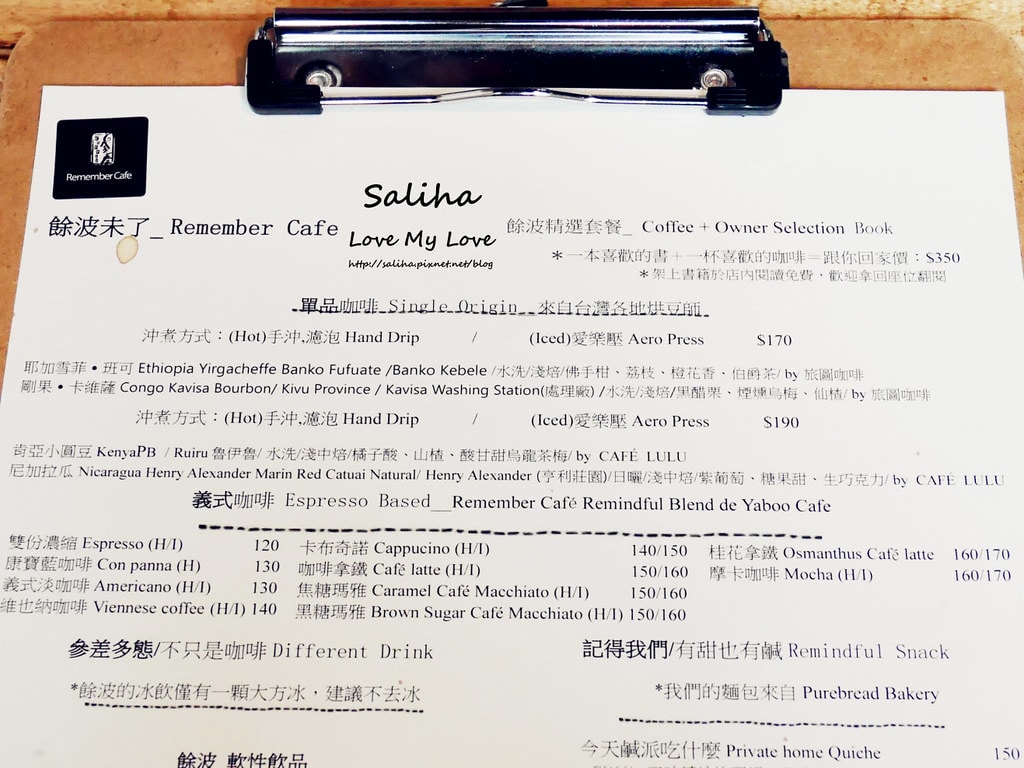 Remember Cafe
Saliha
Love My Love
http://saliha.pixnet.net/blog
餘波未了_ Remember Cafe
餘波精選套餐_ Coffee + Owner Selection Book
＊一本喜歡的書＋一杯喜歡的咖啡＝跟你回家價：$350
＊架上書籍於店內閱讀免費，歡迎拿回座位翻閱
單品咖啡 Single Origin__來自台灣各地烘豆師
沖煮方式：(Hot)手沖,濾泡 Hand Drip / (Iced)愛樂壓 Aero Press $170
耶加雪菲•班可 Ethiopia Yirgacheffe Banko Fufuate /Banko Kebele /水洗/淺焙/佛手柑、荔枝、橙花香、伯爵茶/ by 旅圖咖啡
剛果•卡維薩 Congo Kavisa Bourbon/ Kivu Province / Kavisa Washing Station(處理廠) /水洗/淺焙/黑醋栗、煙燻烏梅、仙楂/ by 旅圖咖啡
沖煮方式：(Hot)手沖,濾泡 Hand Drip / (Iced)愛樂壓 Aero Press $190
肯亞小圓豆 KenyaPB / Ruiru 魯伊魯/ 水洗/淺中焙/橘子酸、山楂、酸甘甜烏龍茶梅/ by CAFÉ LULU
尼加拉瓜 Nicaragua Henry Alexander Marin Red Catuai Natural/ Henry Alexander (亨利莊園)/日曬/淺中焙/紫葡萄、糖果甜、生巧克力/ by CAFÉ LULU
義式咖啡 Espresso Based__Remember Café Remindful Blend de Yaboo Cafe
雙份濃縮 Espresso (H/I) 120
康寶藍咖啡 Con panna (H) 130
義式淡咖啡 Americano (H/I) 130
維也納咖啡 Viennese coffee (H/I) 140
卡布奇諾 Cappucino (H/I) 140/150
咖啡拿鐵 Café latte (H/I) 150/160
焦糖瑪雅 Caramel Café Macchiato (H/I) 150/160
黑糖瑪雅 Brown Sugar Café Macchiato (H/I) 150/160
桂花拿鐵 Osmanthus Café latte 160/170
摩卡咖啡 Mocha (H/I) 160/170
參差多態/不只是咖啡 Different Drink
*餘波的冰飲僅有一顆大方冰，建議不去冰
餘波 軟性飲品
記得我們/有甜也有鹹 Remindful Snack
*我們的麵包來自 Purebread Bakery
今天鹹派吃什麼 Private home Quiche 150